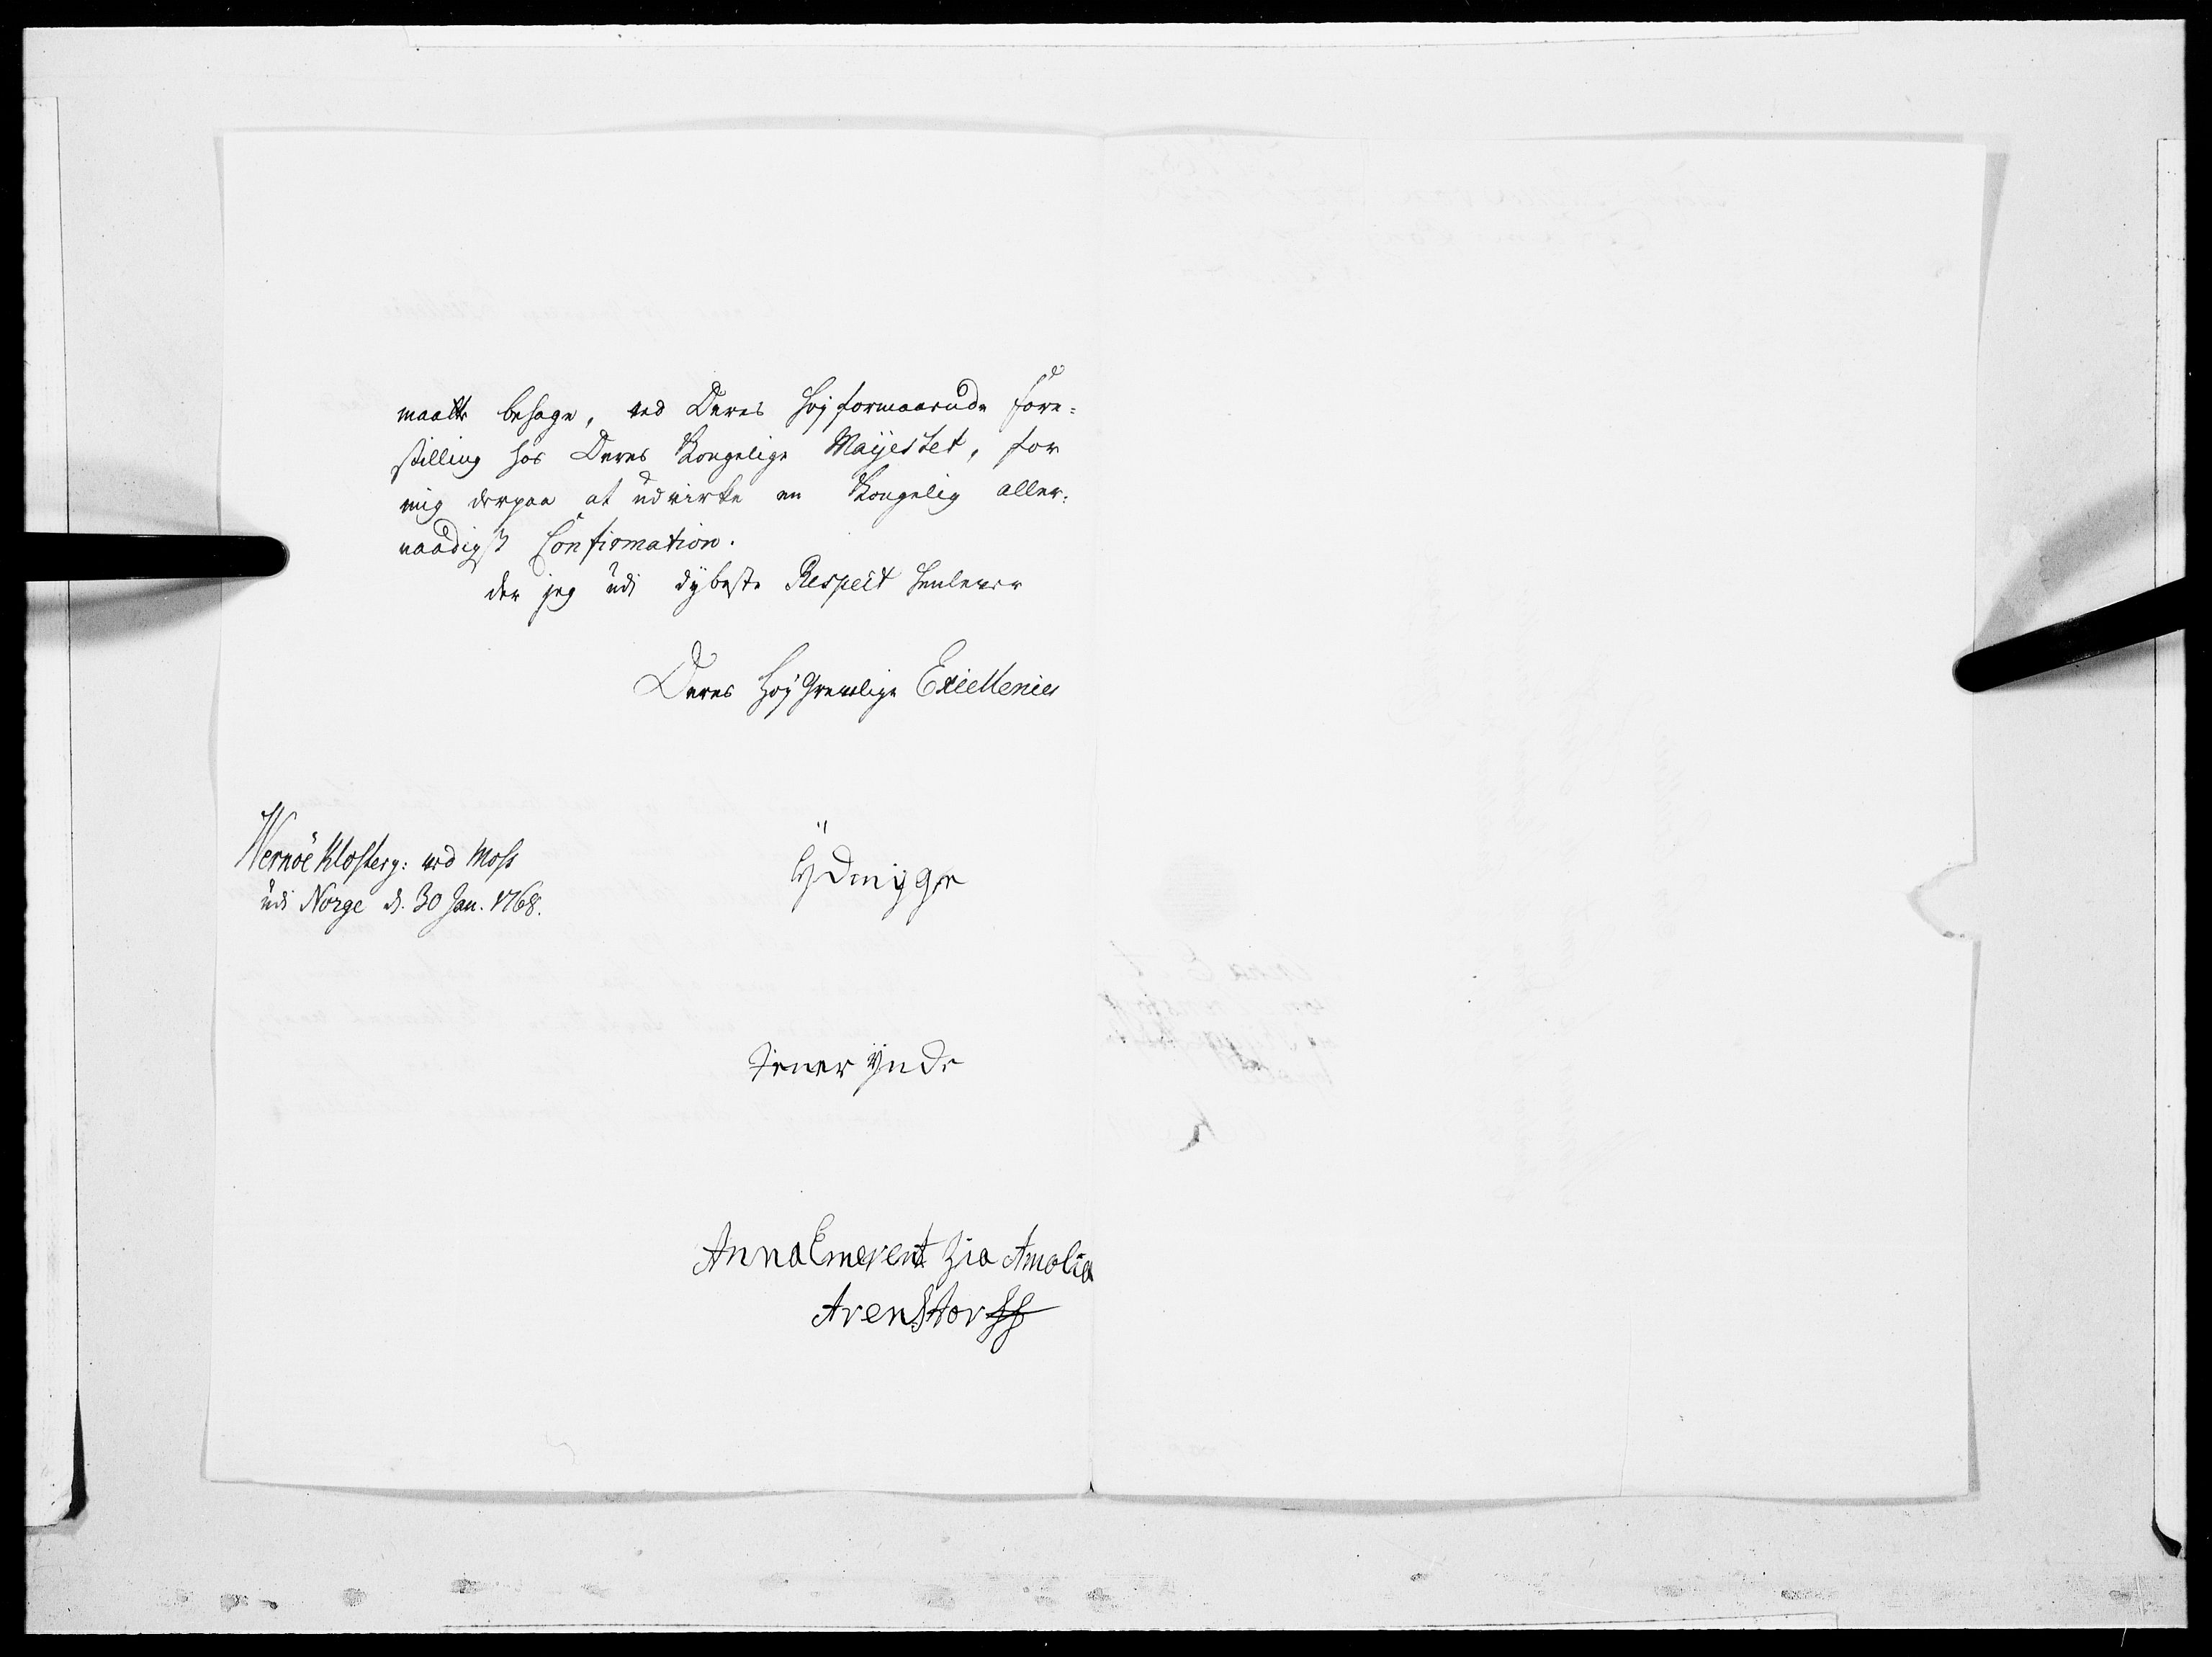 maatte behage, ved Deres Høyformaaende fore-
stilling hos Deres Kongelige Mayestet, for
mig derpaa at udvirke en Kongelig aller-
naadigst Confirmation.
der jeg udi dybeste Respect henlever
Deres Høy Grevelige Excellences
Wernöe Kloster: ved Moss
udi Norge d. 30 Jan. 1768.
Ydmygge
tienerinde
Anna Emerentzia Amalia
Arenstorff